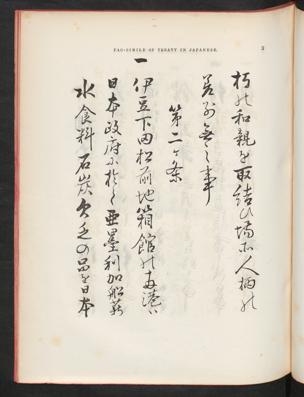 FAC-SIMILE OF TREATY IN JAPANESE.
3
朽の和親を取結ひ場所人柄の
差別無之事
第二ヶ条
一
伊豆下田松前地箱館の両港ハ
日本政府ニ於て亜墨利加船薪
水食料石炭欠乏の品を日本